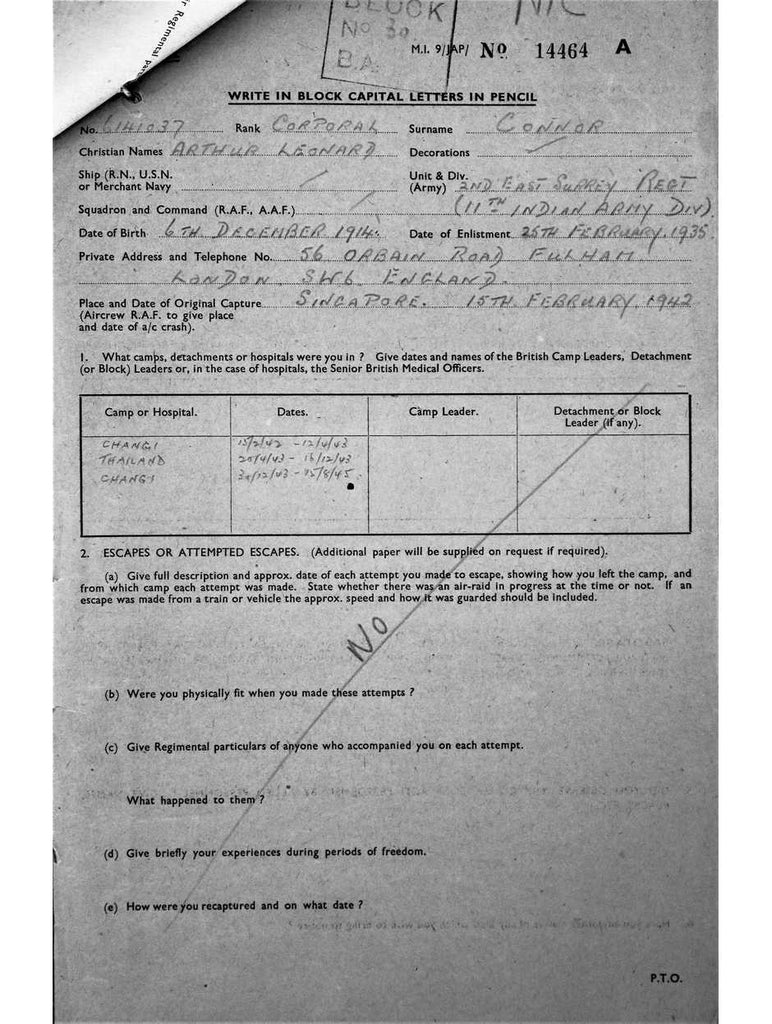 r Regimental par
BLOCK
No 30
B.A.
NIL
M.I. 9/JAP/ No 14464 A
WRITE IN BLOCK CAPITAL LETTERS IN PENCIL
No. 6141037 Rank CORPORAL Surname CONNOR
Christian Names ARTHUR LEONARD Decorations
Ship (R.N., U.S.N. Unit & Div.
or Merchant Navy (Army) 2ND EAST SURREY REGT
Squadron and Command (R.A.F., A.A.F.) (11TH INDIAN ARMY DIV)
Date of Birth 6TH DECEMBER 1914. Date of Enlistment 25TH FEBRUARY. 1935
Private Address and Telephone No. 56 ORBAIN ROAD FULHAM
LONDON. SW6 ENGLAND.
Place and Date of Original Capture SINGAPORE. 15TH FEBRUARY, 1942
(Aircrew R.A.F. to give place
and date of a/c crash).
1. What camps, detachments or hospitals were you in ? Give dates and names of the British Camp Leaders, Detachment
(or Block) Leaders or, in the case of hospitals, the Senior British Medical Officers.
Camp or Hospital. Dates. Camp Leader. Detachment or Block
Leader (if any).
CHANGI 15/2/42 - 12/4/43
THAILAND 20/4/43 - 16/12/43
CHANGI 30/12/43 - 15/8/45.
2. ESCAPES OR ATTEMPTED ESCAPES. (Additional paper will be supplied on request if required).
(a) Give full description and approx. date of each attempt you made to escape, showing how you left the camp, and
from which camp each attempt was made. State whether there was an air-raid in progress at the time or not. If an
escape was made from a train or vehicle the approx. speed and how it was guarded should be included.
NO
(b) Were you physically fit when you made these attempts ?
(c) Give Regimental particulars of anyone who accompanied you on each attempt.
What happened to them ?
(d) Give briefly your experiences during periods of freedom.
(e) How were you recaptured and on what date ?
P.T.O.